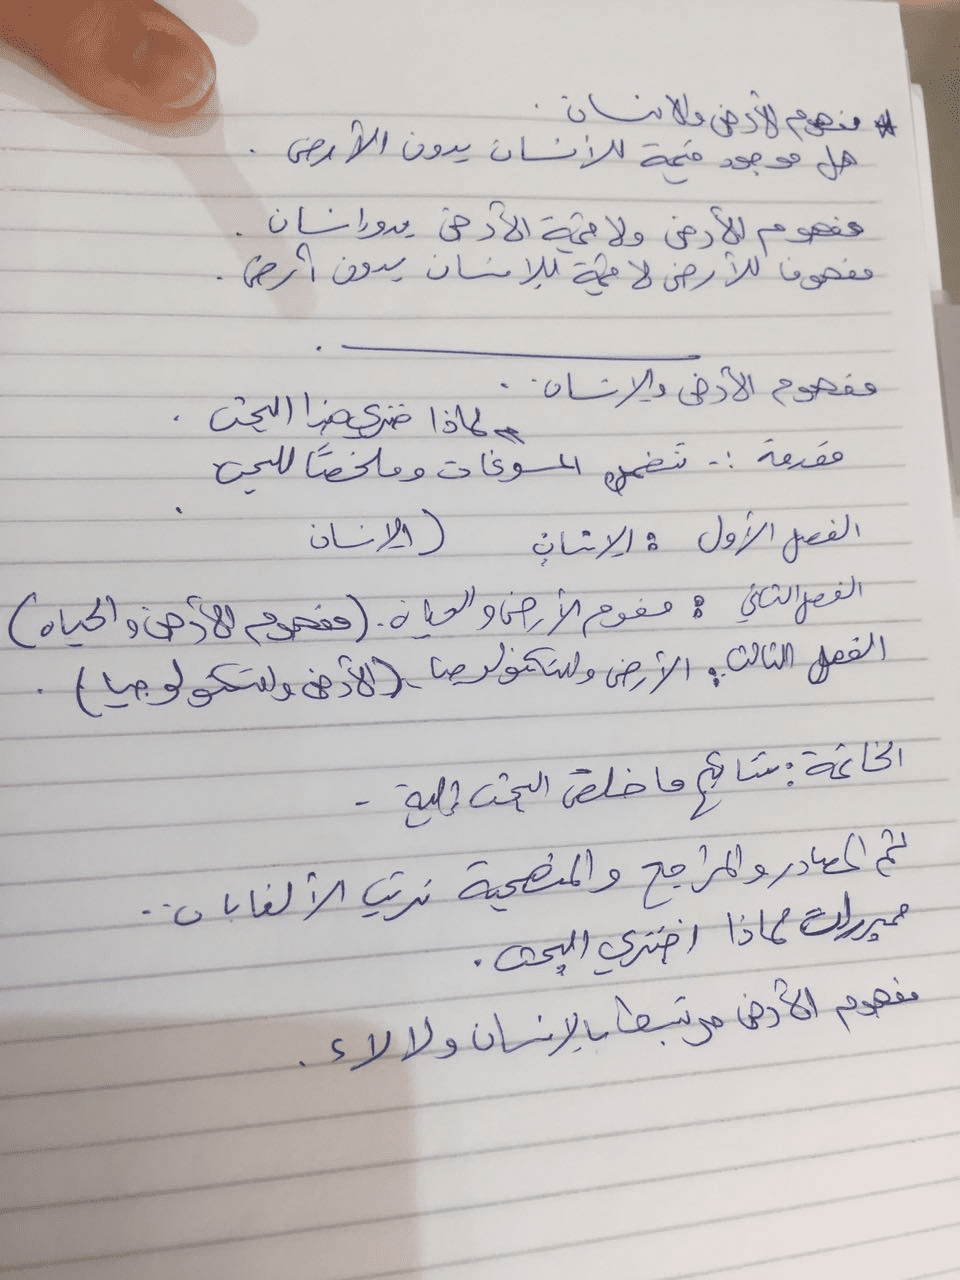 * مفهوم الأرض والانسان.
هل موجود قيمة للأنسان بدون الأرض.
مفهوم الأرض ولا قيمة الأرض بدو انسان.
مفهوما للأرض لا قيمة للإنسان بدون أرض.
مفهوم الأرض والإنسان.
لماذا هذا البحث.
مقدمة :- تتضمن المسوغات وملخصًا للبحث
الفصل الأول : الإنسان (الإنسان
الفصل الثاني : مفهوم الأرض والحياة. (مفهوم الأرض والحياه)
الفصل الثالث: الأرض والتكنولوجيا. (الأرض والتكنولوجيا).
الخاتمة: نتائج ما خلص البحث إليه -
ثم المصادر والمراجع والمنهجية ترتيب
مبررات لماذا اختري البحث.
مفهوم الأرض مرتبط بالإنسان